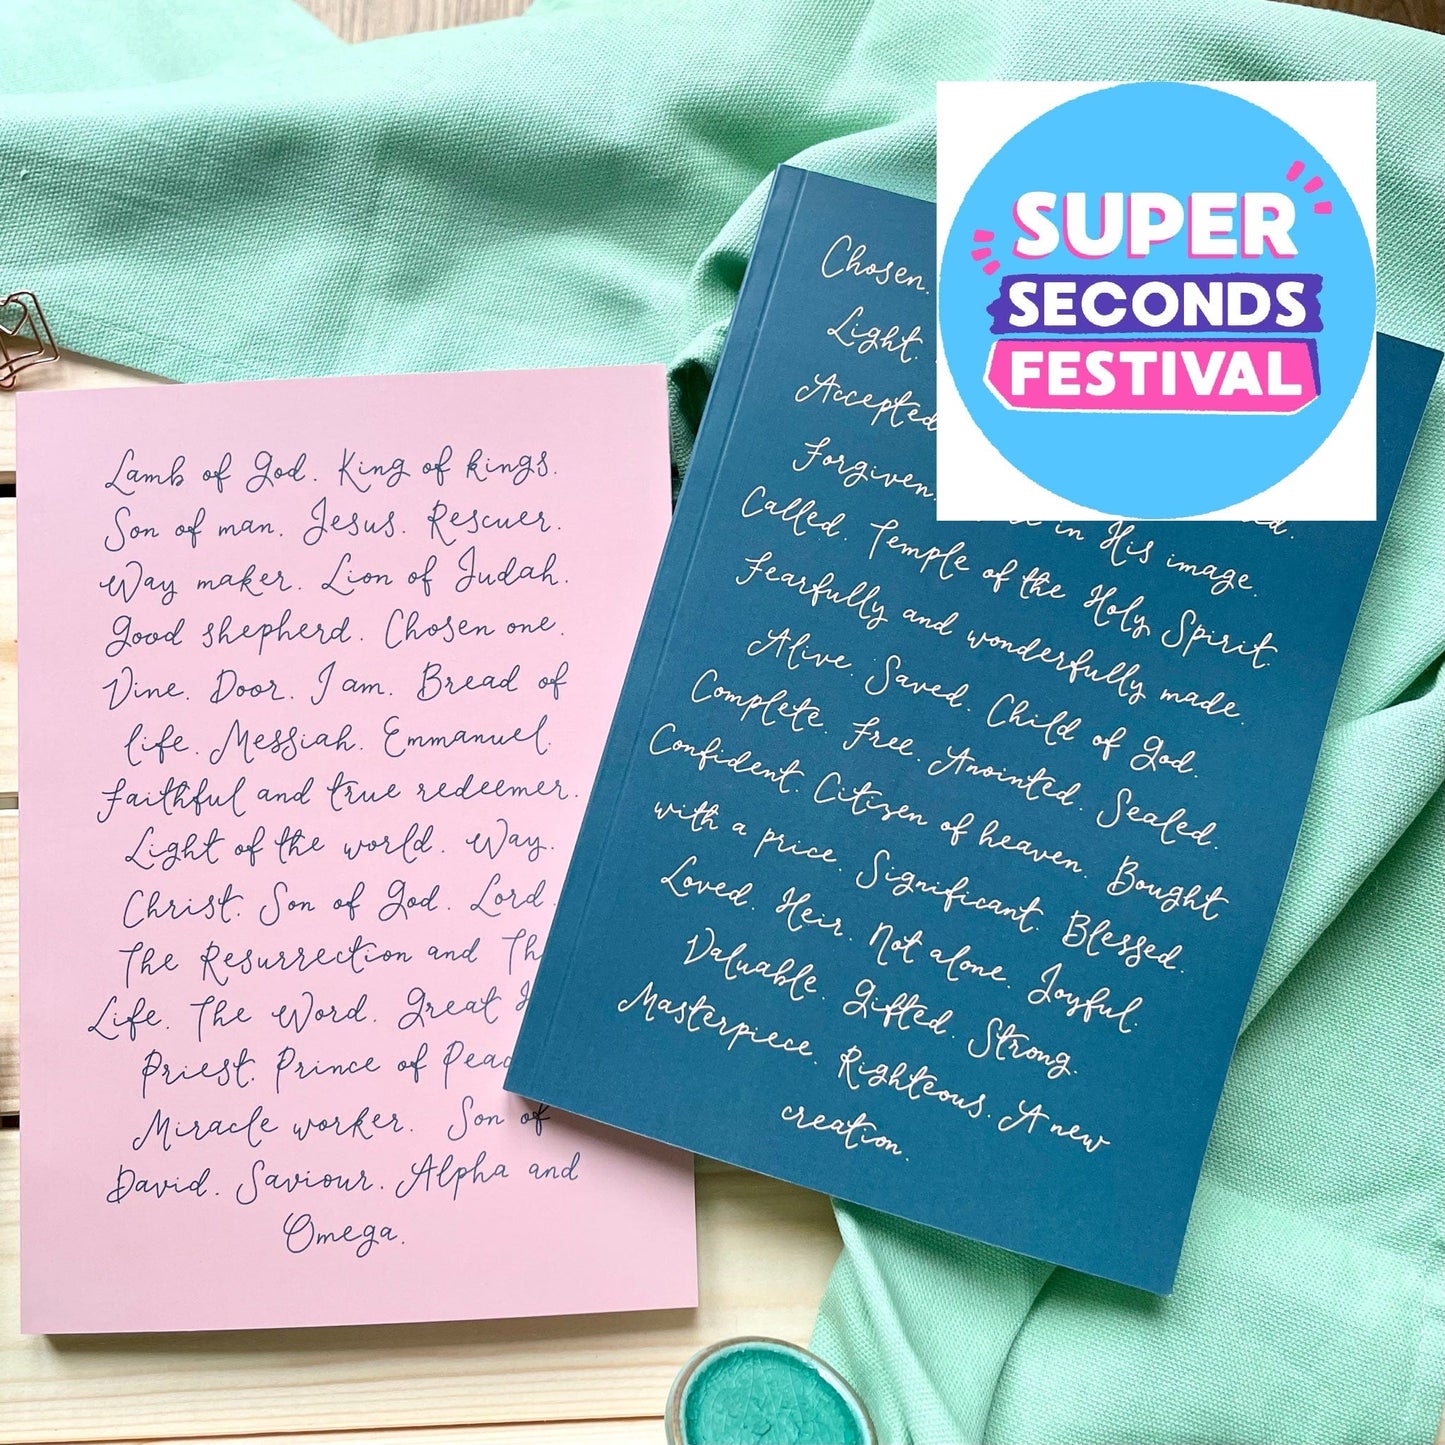 Lamb of God. King of kings.
Son of man. Jesus. Rescuer.
Way maker. Lion of Judah.
Good shepherd. Chosen one.
Vine. Door. I am. Bread of
life. Messiah. Emmanuel.
Faithful and true redeemer.
Light of the world. Way.
Christ. Son of God. Lord.
The Resurrection and
Life. The Word. Great
Priest. Prince of
Miracle worker. Son of
David. Saviour. Alpha and
Omega.
Chosen.
Light.
Accepted
Forgiven.
in His image.
Called. Temple of the Holy Spirit.
Fearfully and wonderfully made.
Alive. Saved. Child of God.
Complete. Free. Anointed. Sealed.
Confident. Citizen of heaven. Bought
with a price. Significant. Blessed.
Loved. Heir. Not alone. Joyful.
Valuable. Gifted. Strong.
Masterpiece. Righteous. A new
creation.
SUPER
SECONDS
FESTIVAL